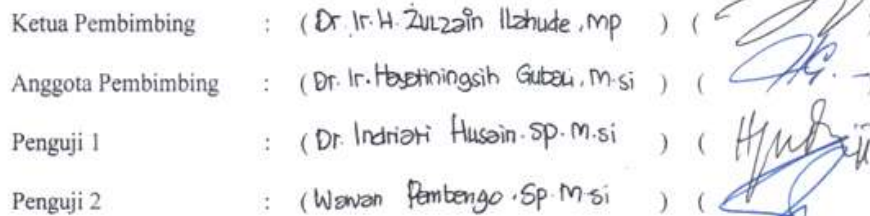 Ketua Pembimbing : (Dr. Ir. H. Zulzain Ilahude, MP ) (
Anggota Pembimbing : (Dr. Ir. Hayatiningsih Gubali, M.si ) (
Penguji 1 : (Dr. Indriati Husain. SP. M.si ) (
Penguji 2 : (Wawan Pembengo. SP. M.si ) (